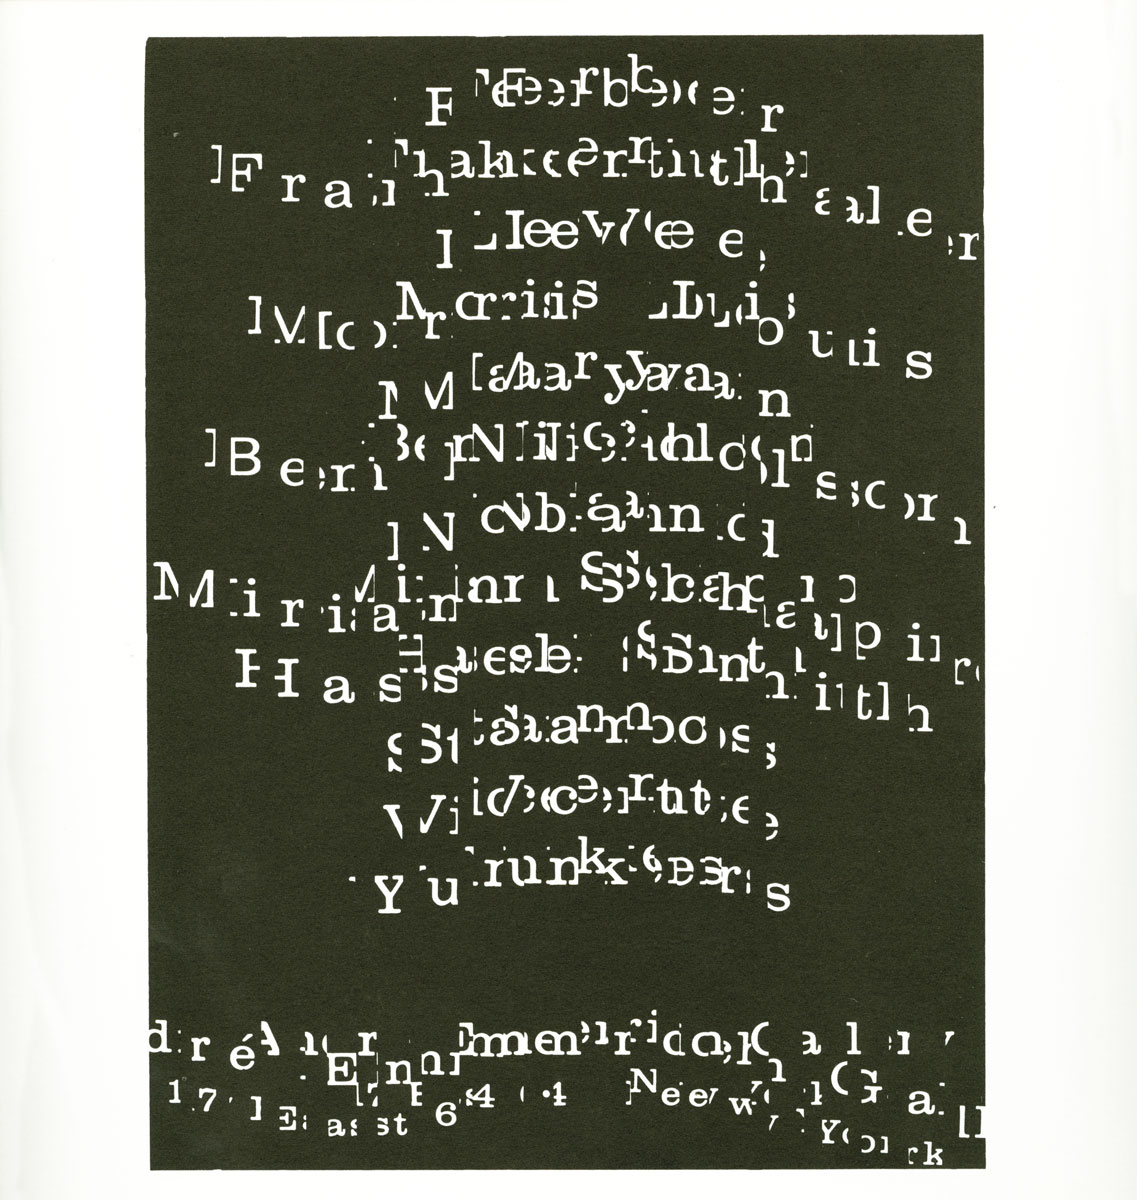 Ferber
Frankenthaler
Levee
Morris Louis
Maryan
Ben Nicholson
Noland
Miriam Schapiro
Hassel Smith
Stamos
Vicente
Yunkers
André Emmerich Gallery
17 East 64 New York